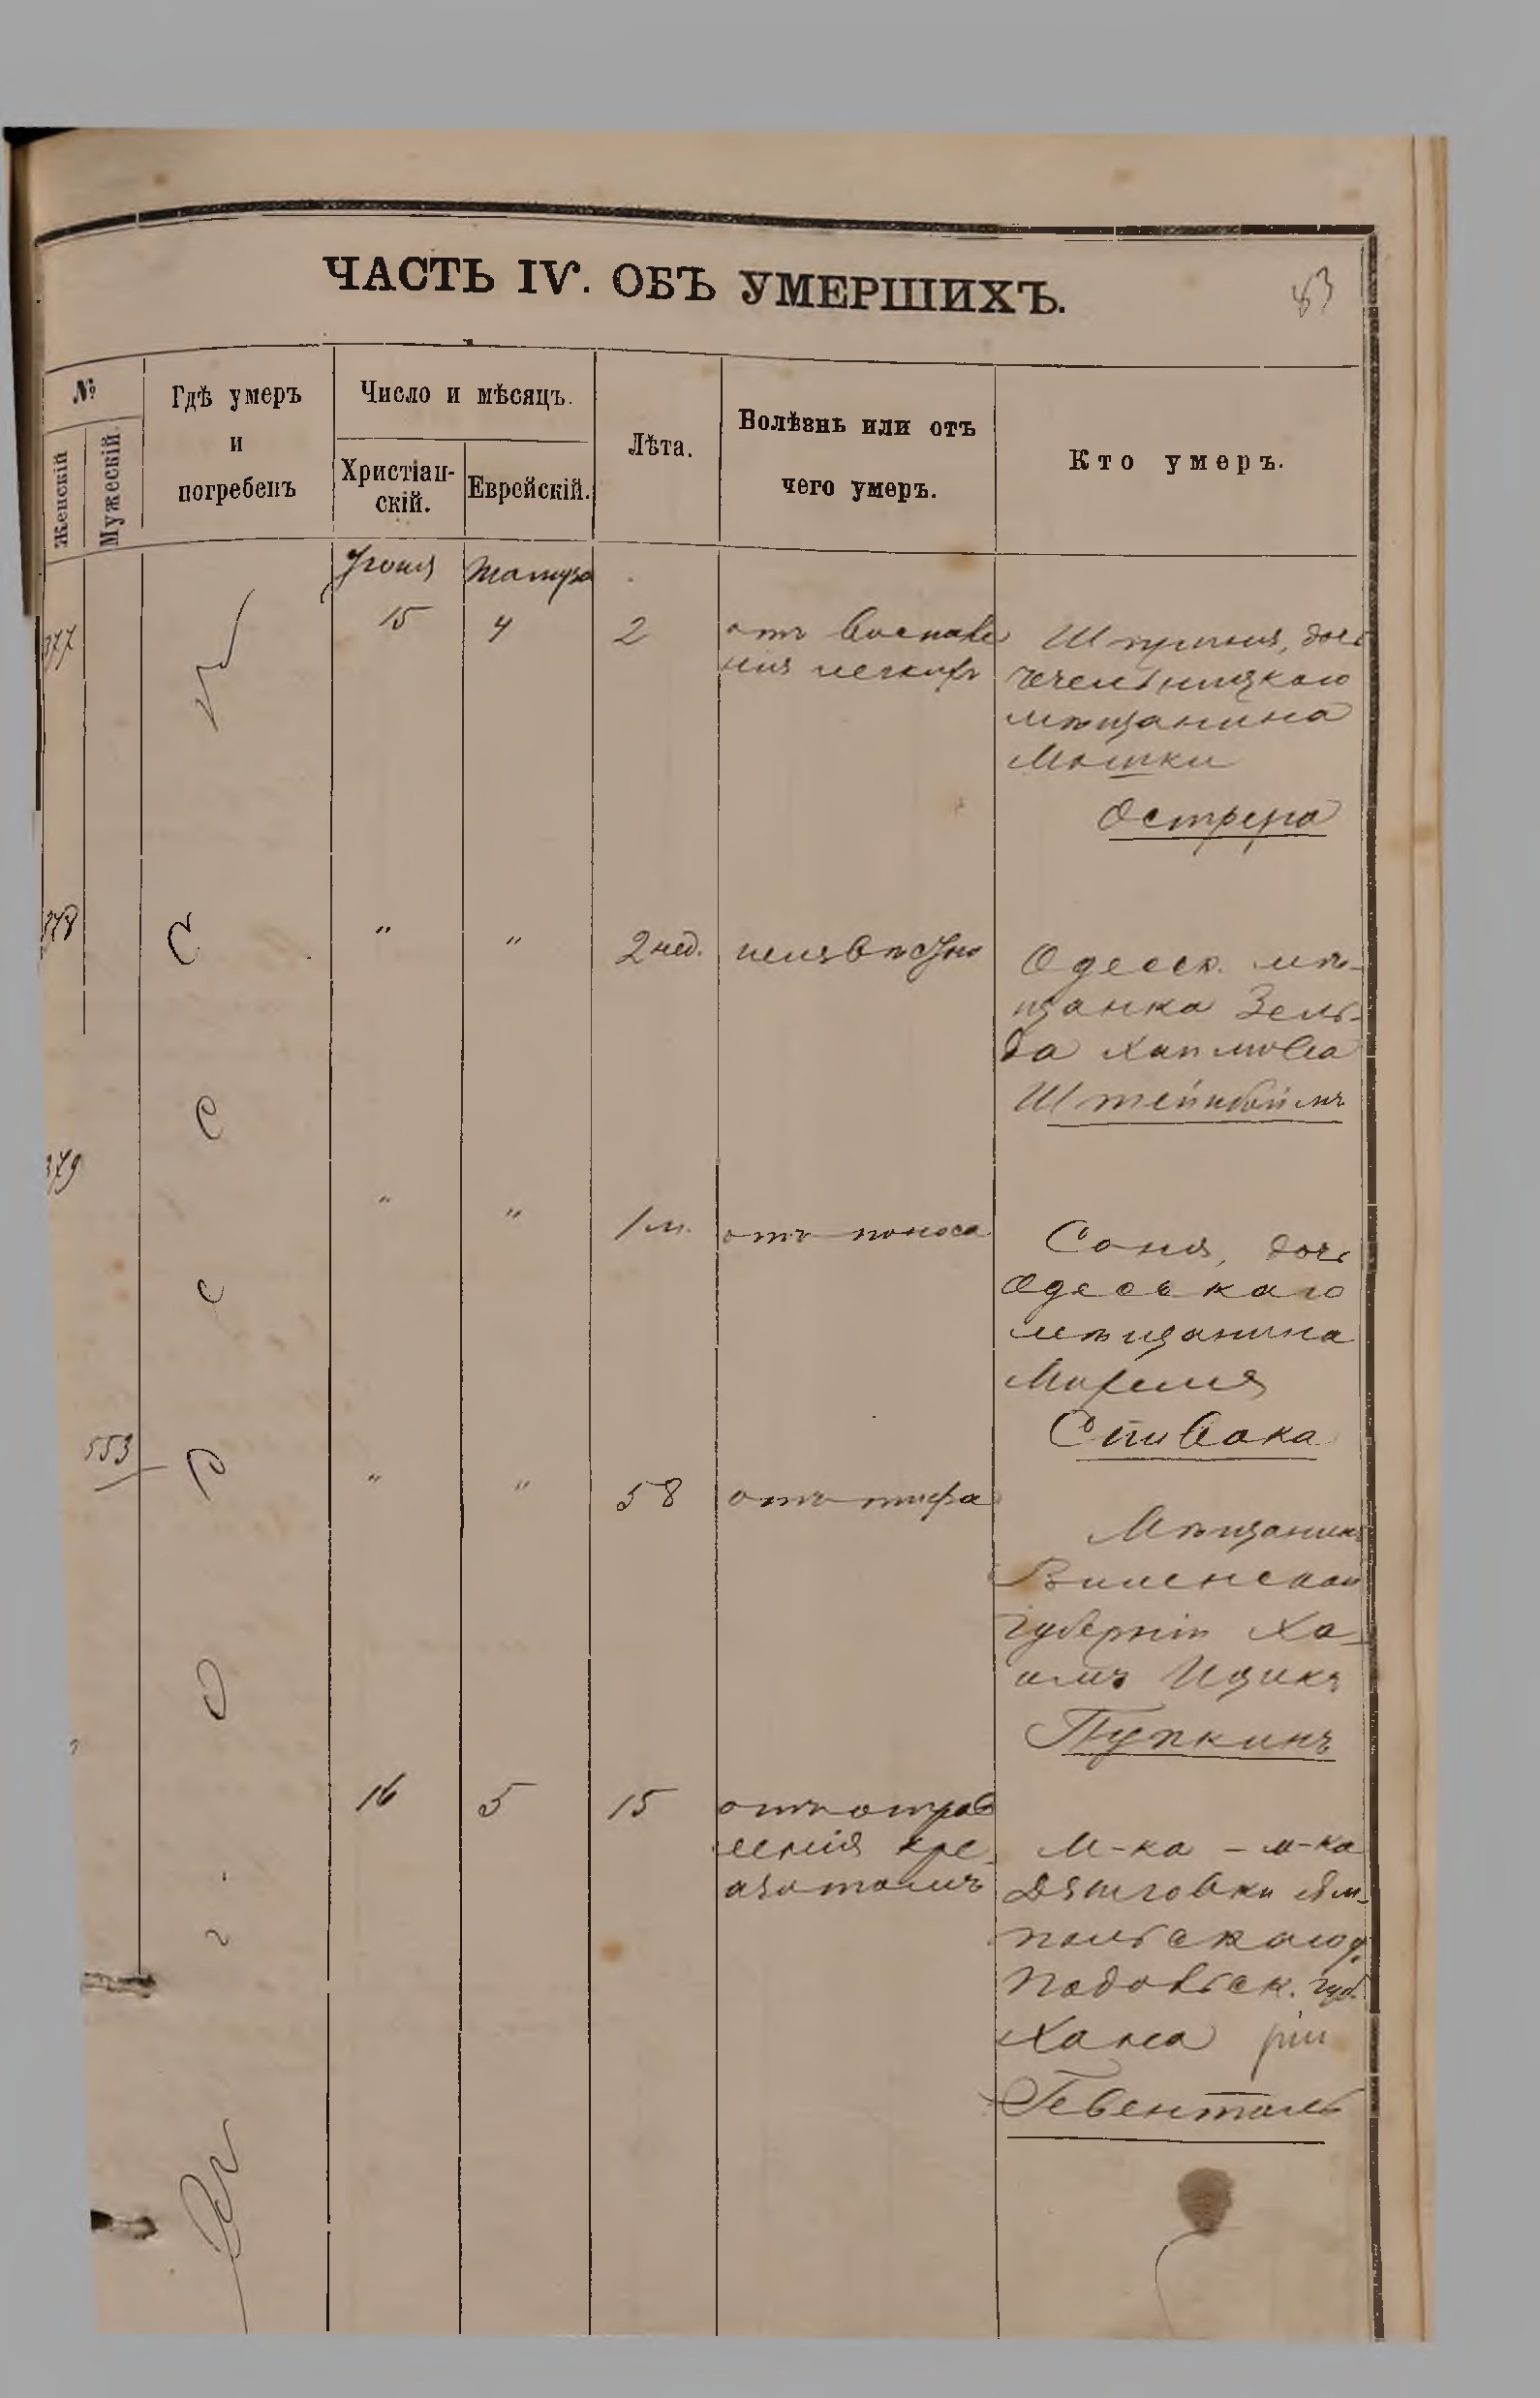 ЧАСТЬ IV. ОБЪ УМЕРШИХЪ.
83
№
Женскій
Мужескій
Гдѣ умеръ
и
погребенъ
Число и мѣсяцъ.
Христіан-
скій.
Еврейскій.
Лѣта.
Болѣзнь или отъ
чего умеръ.
Кто умеръ.
Іюня
Тамуза
377
15
4
2
отъ воспале
нія легкихъ
дочь
Чечельницкаго
мѣщанина
Мошки
Острера
378
С
"
"
2 нед.
неизвѣстно
Одесск. мѣ-
щанка Зель-
да Хаимова
Штейнбоймъ
379
"
"
1 м.
отъ поноса
Соня, дочь
Одесскаго
мѣщанина
Спивака
553
"
"
58
отъ тифа
Мѣщанинъ
Виленской
губерніи Ха-
имъ Ицикъ
Пупкинъ
16
5
15
отъ отрав
ленія кре-
азотомъ
М-ка - м-ка
Дзыговки Ям-
польскаго у.
Подольск. губ.
Ханса
Гевенталь